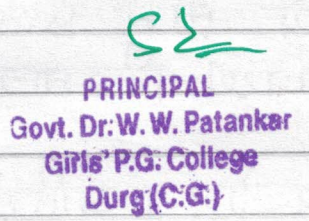 PRINCIPAL
Govt. Dr. W. W. Patankar
Girls' P.G. College
Durg (C.G.)